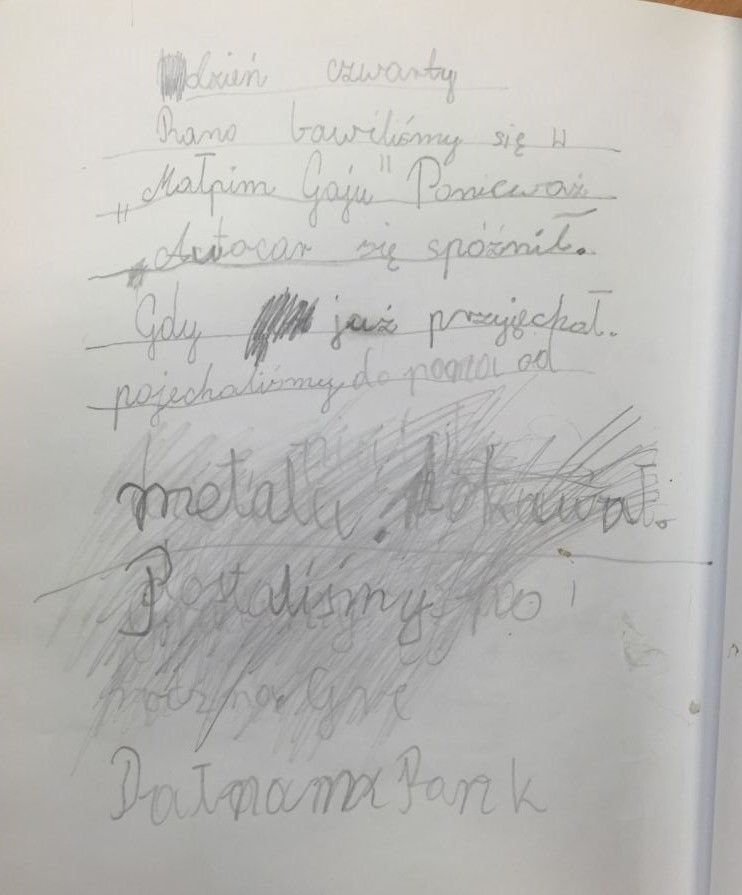 dzień czwarty
Rano bawiliśmy się w
„Małpim Gaju" Ponieważ
Autocar się spóźnił.
Gdy już przyjechał.
pojechaliśmy do pogna od
metalu.
Postaliśmy po
Grę
Park